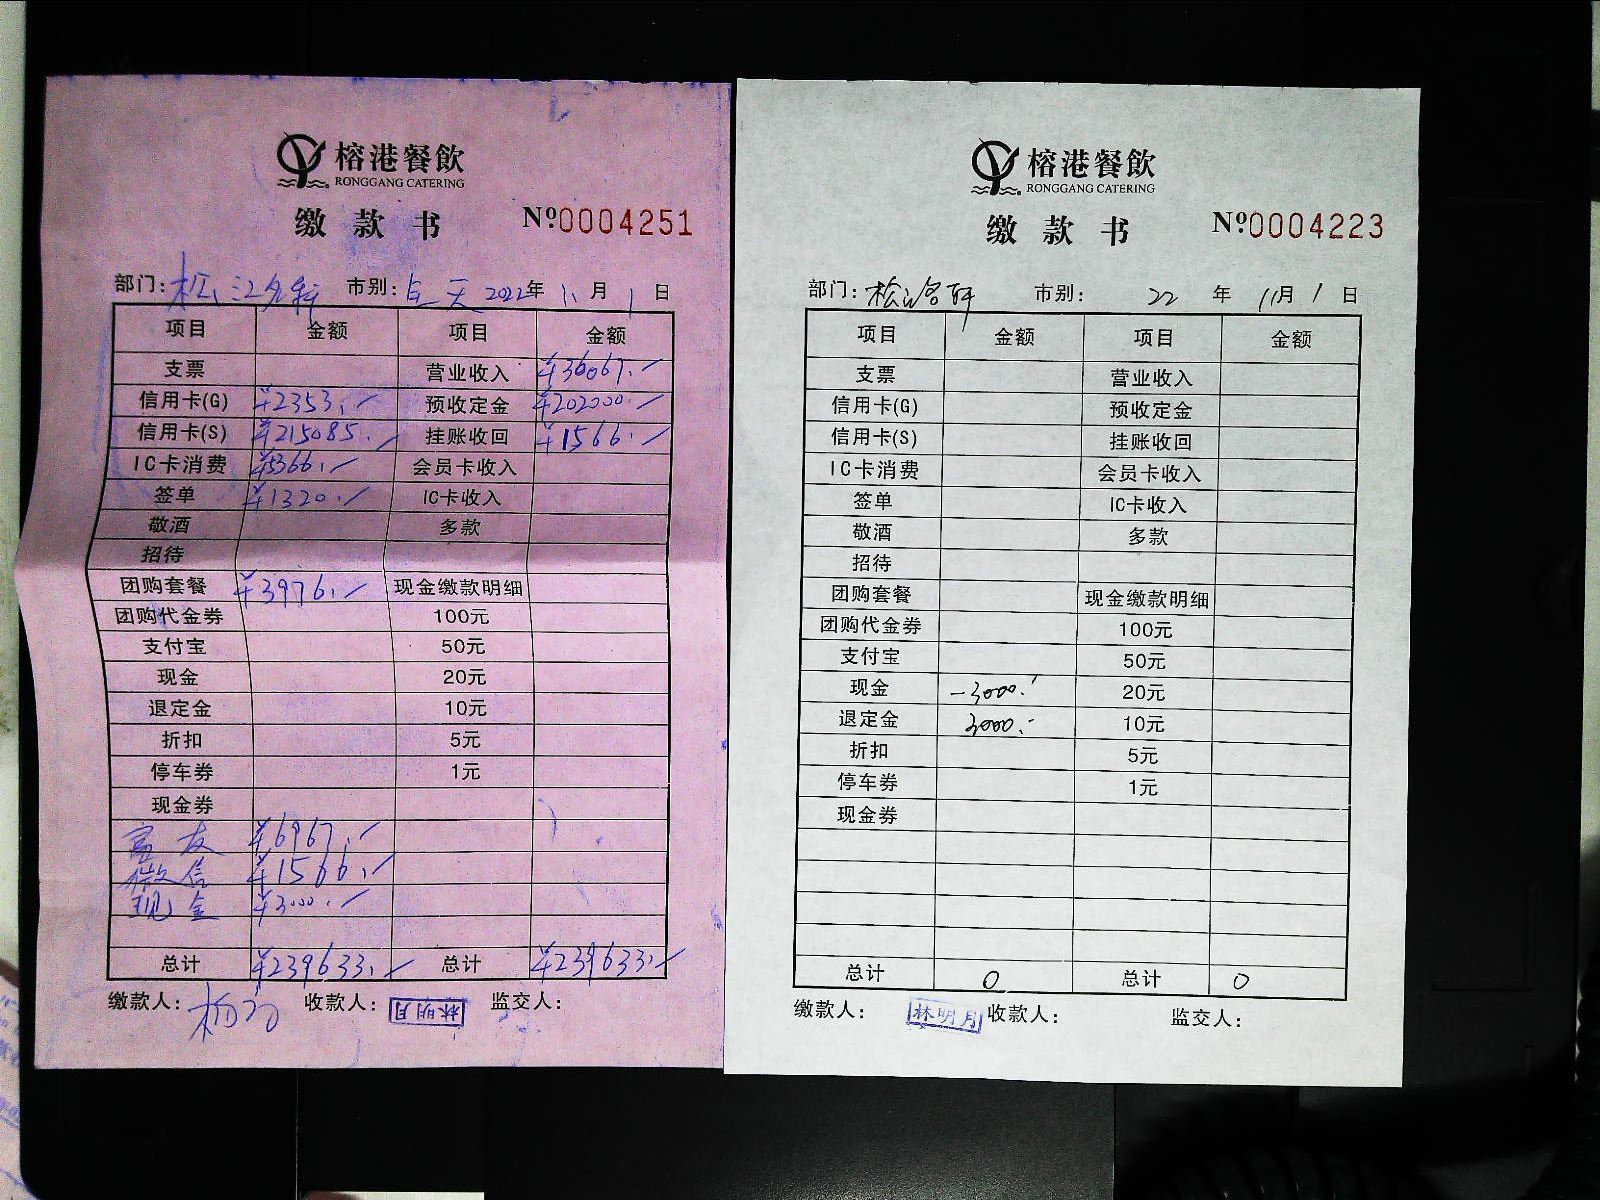 榕港餐飲
RONGGANG CATERING
缴款书 №0004251
部门: 松江名轩 市别: 全天 2022年 11月 1日
项目 金额 项目 金额
支票 营业收入 ¥36067.-
信用卡(G) ¥2353.- 预收定金 ¥202000.-
信用卡(S) ¥215085.- 挂账收回 ¥1566.-
IC卡消费 ¥5366.- 会员卡收入
签单 ¥1320.- IC卡收入
敬酒 多款
招待
团购套餐 ¥3976.- 现金缴款明细
团购代金券 100元
支付宝 50元
现金 20元
退定金 10元
折扣 5元
停车券 1元
现金券
友 ¥6967.-
微信 ¥1566.-
现金 ¥3000.-
总计 ¥239633.- 总计 ¥239633.-
缴款人: 杨 收款人: 林明月 监交人:
榕港餐飲
RONGGANG CATERING
缴款书 №0004223
部门: 松江名轩 市别: 22 年 11月 1日
项目 金额 项目 金额
支票 营业收入
信用卡(G) 预收定金
信用卡(S) 挂账收回
IC卡消费 会员卡收入
签单 IC卡收入
敬酒 多款
招待
团购套餐 现金缴款明细
团购代金券 100元
支付宝 50元
现金 -3000.- 20元
退定金 3000.- 10元
折扣 5元
停车券 1元
现金券
总计 0 总计 0
缴款人: 林明月 收款人: 监交人: